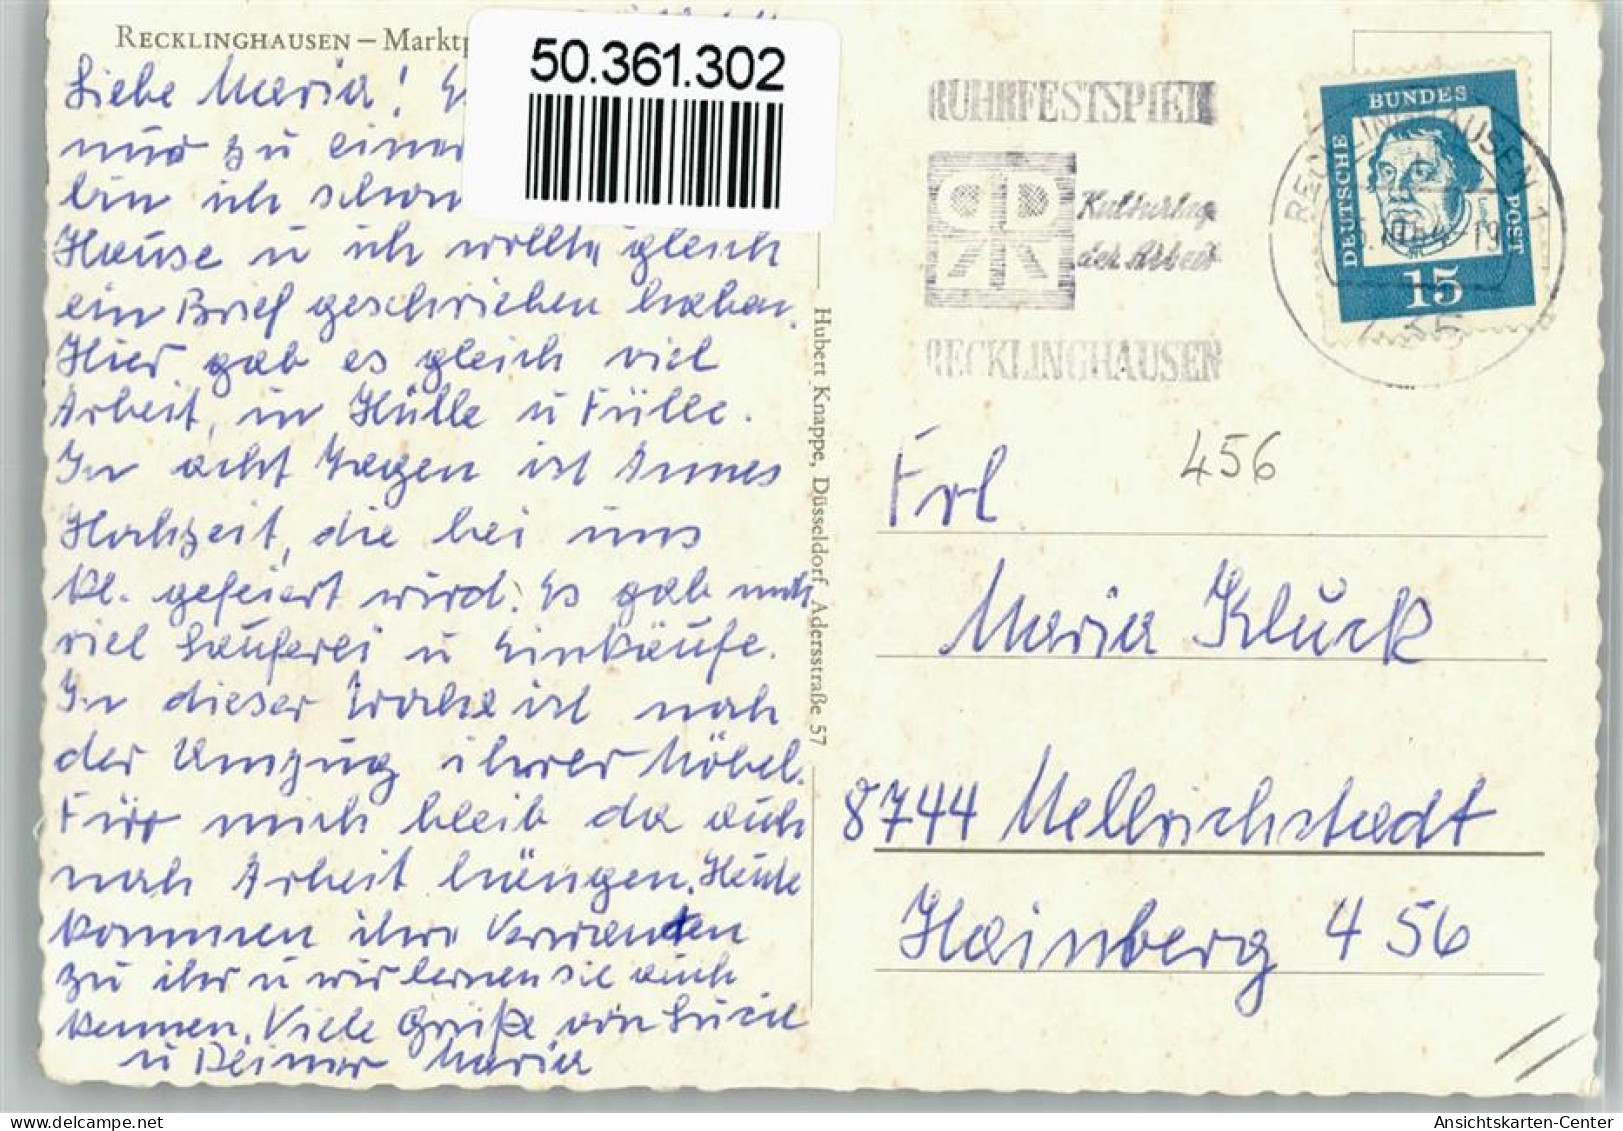 RECKLINGHAUSEN – Marktp
50.361.302
Liebe Maria! Es
nur zu einer
bin ich schon
Hause u ich wollte gleich
ein Brief geschrieben haben.
Hier gab es gleich viel
Arbeit, in Hülle u Fülle.
In acht Tagen ist Annes
Hochzeit, die bei uns
kl. gefeiert wird. Es gab noch
viel Lauferei u Einkäufe.
In dieser Woche ist noch
der Umzug ihrer Möbel.
Für mich bleib da auch
noch Arbeit hängen. Heute
kommen ihre Verwandten
zu ihr u wir lernen sie auch
kennen. Viele Grüße von
u Deiner Maria
Hubert Knappe, Düsseldorf, Adersstraße 57
RUHRFESTSPIELE
Kulturtag
der Arbeit
RECKLINGHAUSEN
RECKLINGHAUSEN 1
DEUTSCHE
BUNDES
POST
15
456
Frl
Maria Kluck
8744 Mellrichstadt
Hainberg 456
Ansichtskarten-Center